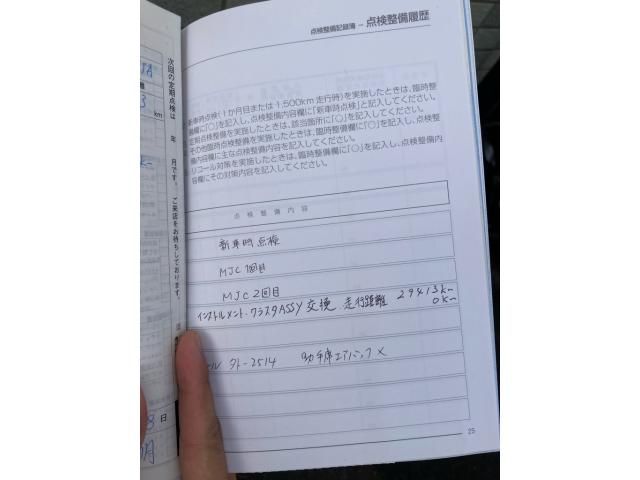 点検整備記録簿 − 点検整備履歴
新車時点検(1か月目または1,500km走行時)を実施したときは、臨時整
備欄に「○」を記入し、点検整備内容欄に「新車時点検」と記入してください。
定期点検整備を実施したときは、該当箇所に「○」を記入してください。
その他臨時点検整備を実施したときは、臨時整備欄に「○」を記入し、点検整
備内容欄に主な点検整備内容を記入してください。
リコール対策を実施したときは、臨時整備欄に「○」を記入し、点検整備内
容欄にその対策内容を記入してください。
点検整備内容
新車時点検
MJC 1回目
MJC 2回目
インストルメント・クラスタASSY 交換 走行距離 29413km
0km
ール 外-2514 助手席エアバッグ ×
25
次回の定期点検は 年 月です。ご来店をお待ちしております。
3 km
日
月